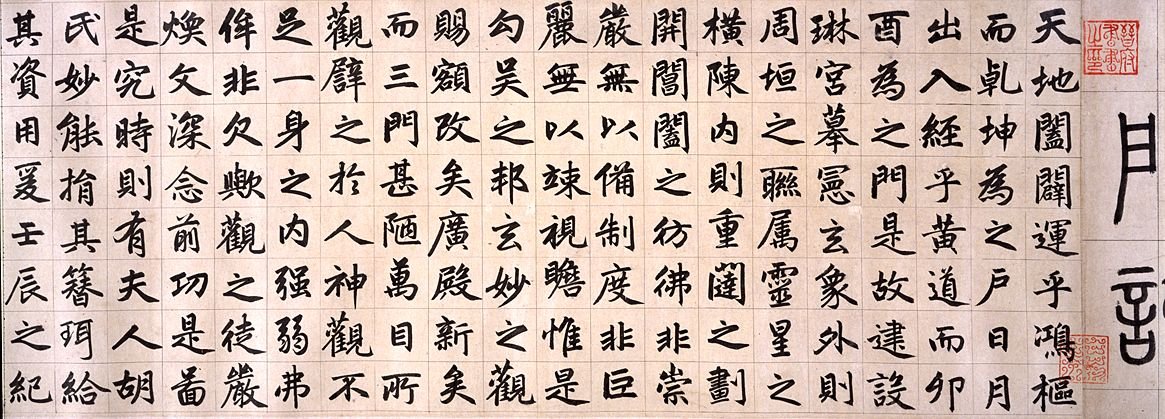 天地闔闢運乎鴻樞
而乹坤為之户日月
出入經乎黄道而卯
酉為之門是故建設
琳宮摹憲玄象外則
周垣之聯属靈星之
横陳内則重闥之劃
開閶闔之彷彿非崇
嚴無以備制度非巨
麗無以竦視瞻惟是
勾吴之邦玄妙之觀
賜額改矣廣殿新矣
而三門甚陋萬目所
觀譬之於人神觀不
足一身之内强弱弗
侔非欠歟觀之徒嚴
煥文深念前功是啚
是究時則有夫人胡
氏妙能捐其簪珥給
其資用爰壬辰之紀